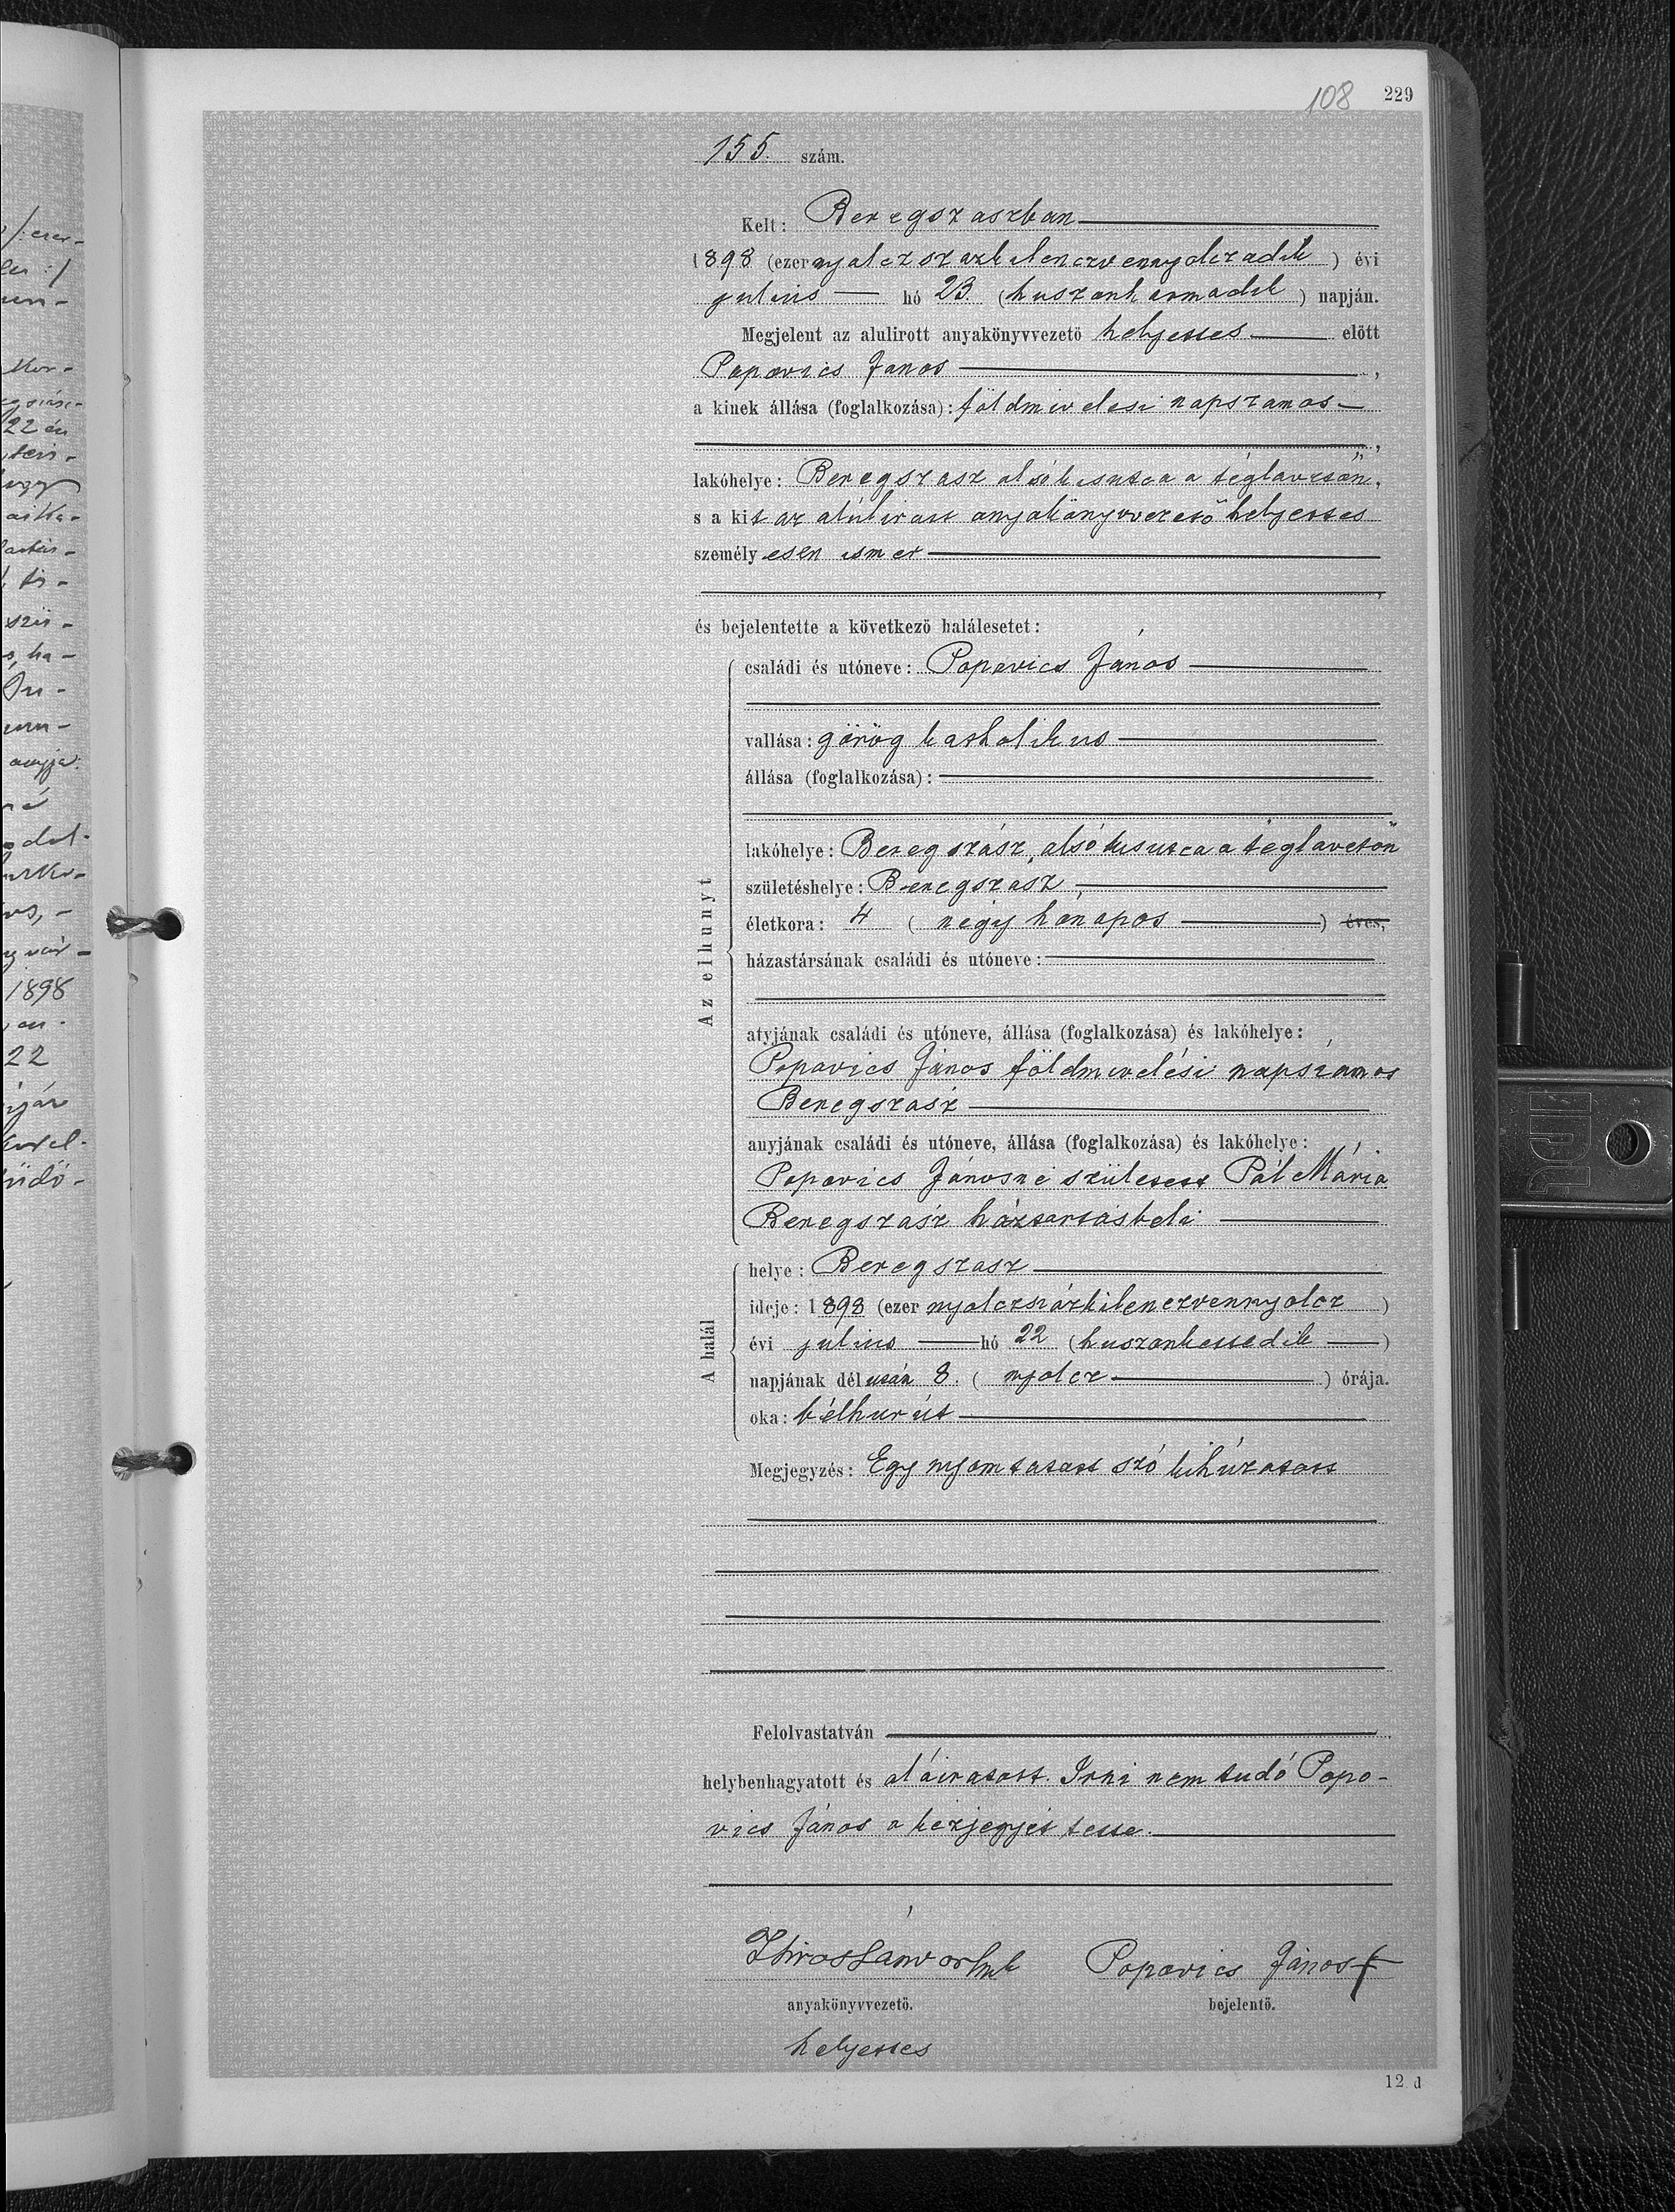 108 229
155. szám.
Kelt: Beregszaszban
1898 (ezer nyolczszazkilenczvennyolczadik) évi
julius hó 23. (huszonharmadik) napján.
Megjelent az alulirott anyakönyvvezető helyettes előtt
Popovics Janos ,
a kinek állása (foglalkozása): földmivelesi napszamos
,
lakóhelye: Beregszasz alsókisutca a téglavetőn,
s a kit az alulirott anyakönyvvezető helyettes
személyesen ismer
,
és bejelentette a következő halálesetet:
Az elhunyt
családi és utóneve: Popovics János
vallása: görög katholikus
állása (foglalkozása):
lakóhelye: Beregszász, alsókisutca a téglavetőn
születéshelye: Beregszasz
életkora: 4 (négy hónapos) éves,
házastársának családi és utóneve:
atyjának családi és utóneve, állása (foglalkozása) és lakóhelye:
Popovics János földmivelési napszámos
Beregszász
anyjának családi és utóneve, állása (foglalkozása) és lakóhelye:
Popovics Jánosné született Pál Mária
Beregszász háztartásbeli
A halál
helye: Beregszasz
ideje: 1898 (ezer nyolczszázkilenczvennyolcz)
évi julius hó 22 (huszonkettedik)
napjának délután 8. (nyolcz) órája.
oka: bélhurút
Megjegyzés: Egy nyomtatott szó kihúzatott
Felolvastatván
helybenhagyatott és aláiratott. Irni nem tudó Popo-
vics János a kézjegyét tette.
Popovics János +
anyakönyvvezető. bejelentő.
helyettes
12 d
1898
22